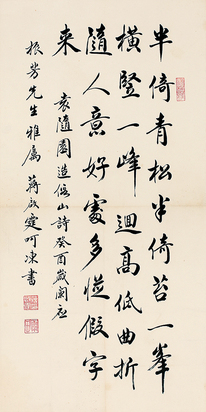 半倚青松半倚苔一峯
橫豎一峰迴高低曲折
隨人意好處多從假字
來
袁隨園造假山詩癸酉歲闌應
振芳先生雅屬蔣啟霆呵凍書